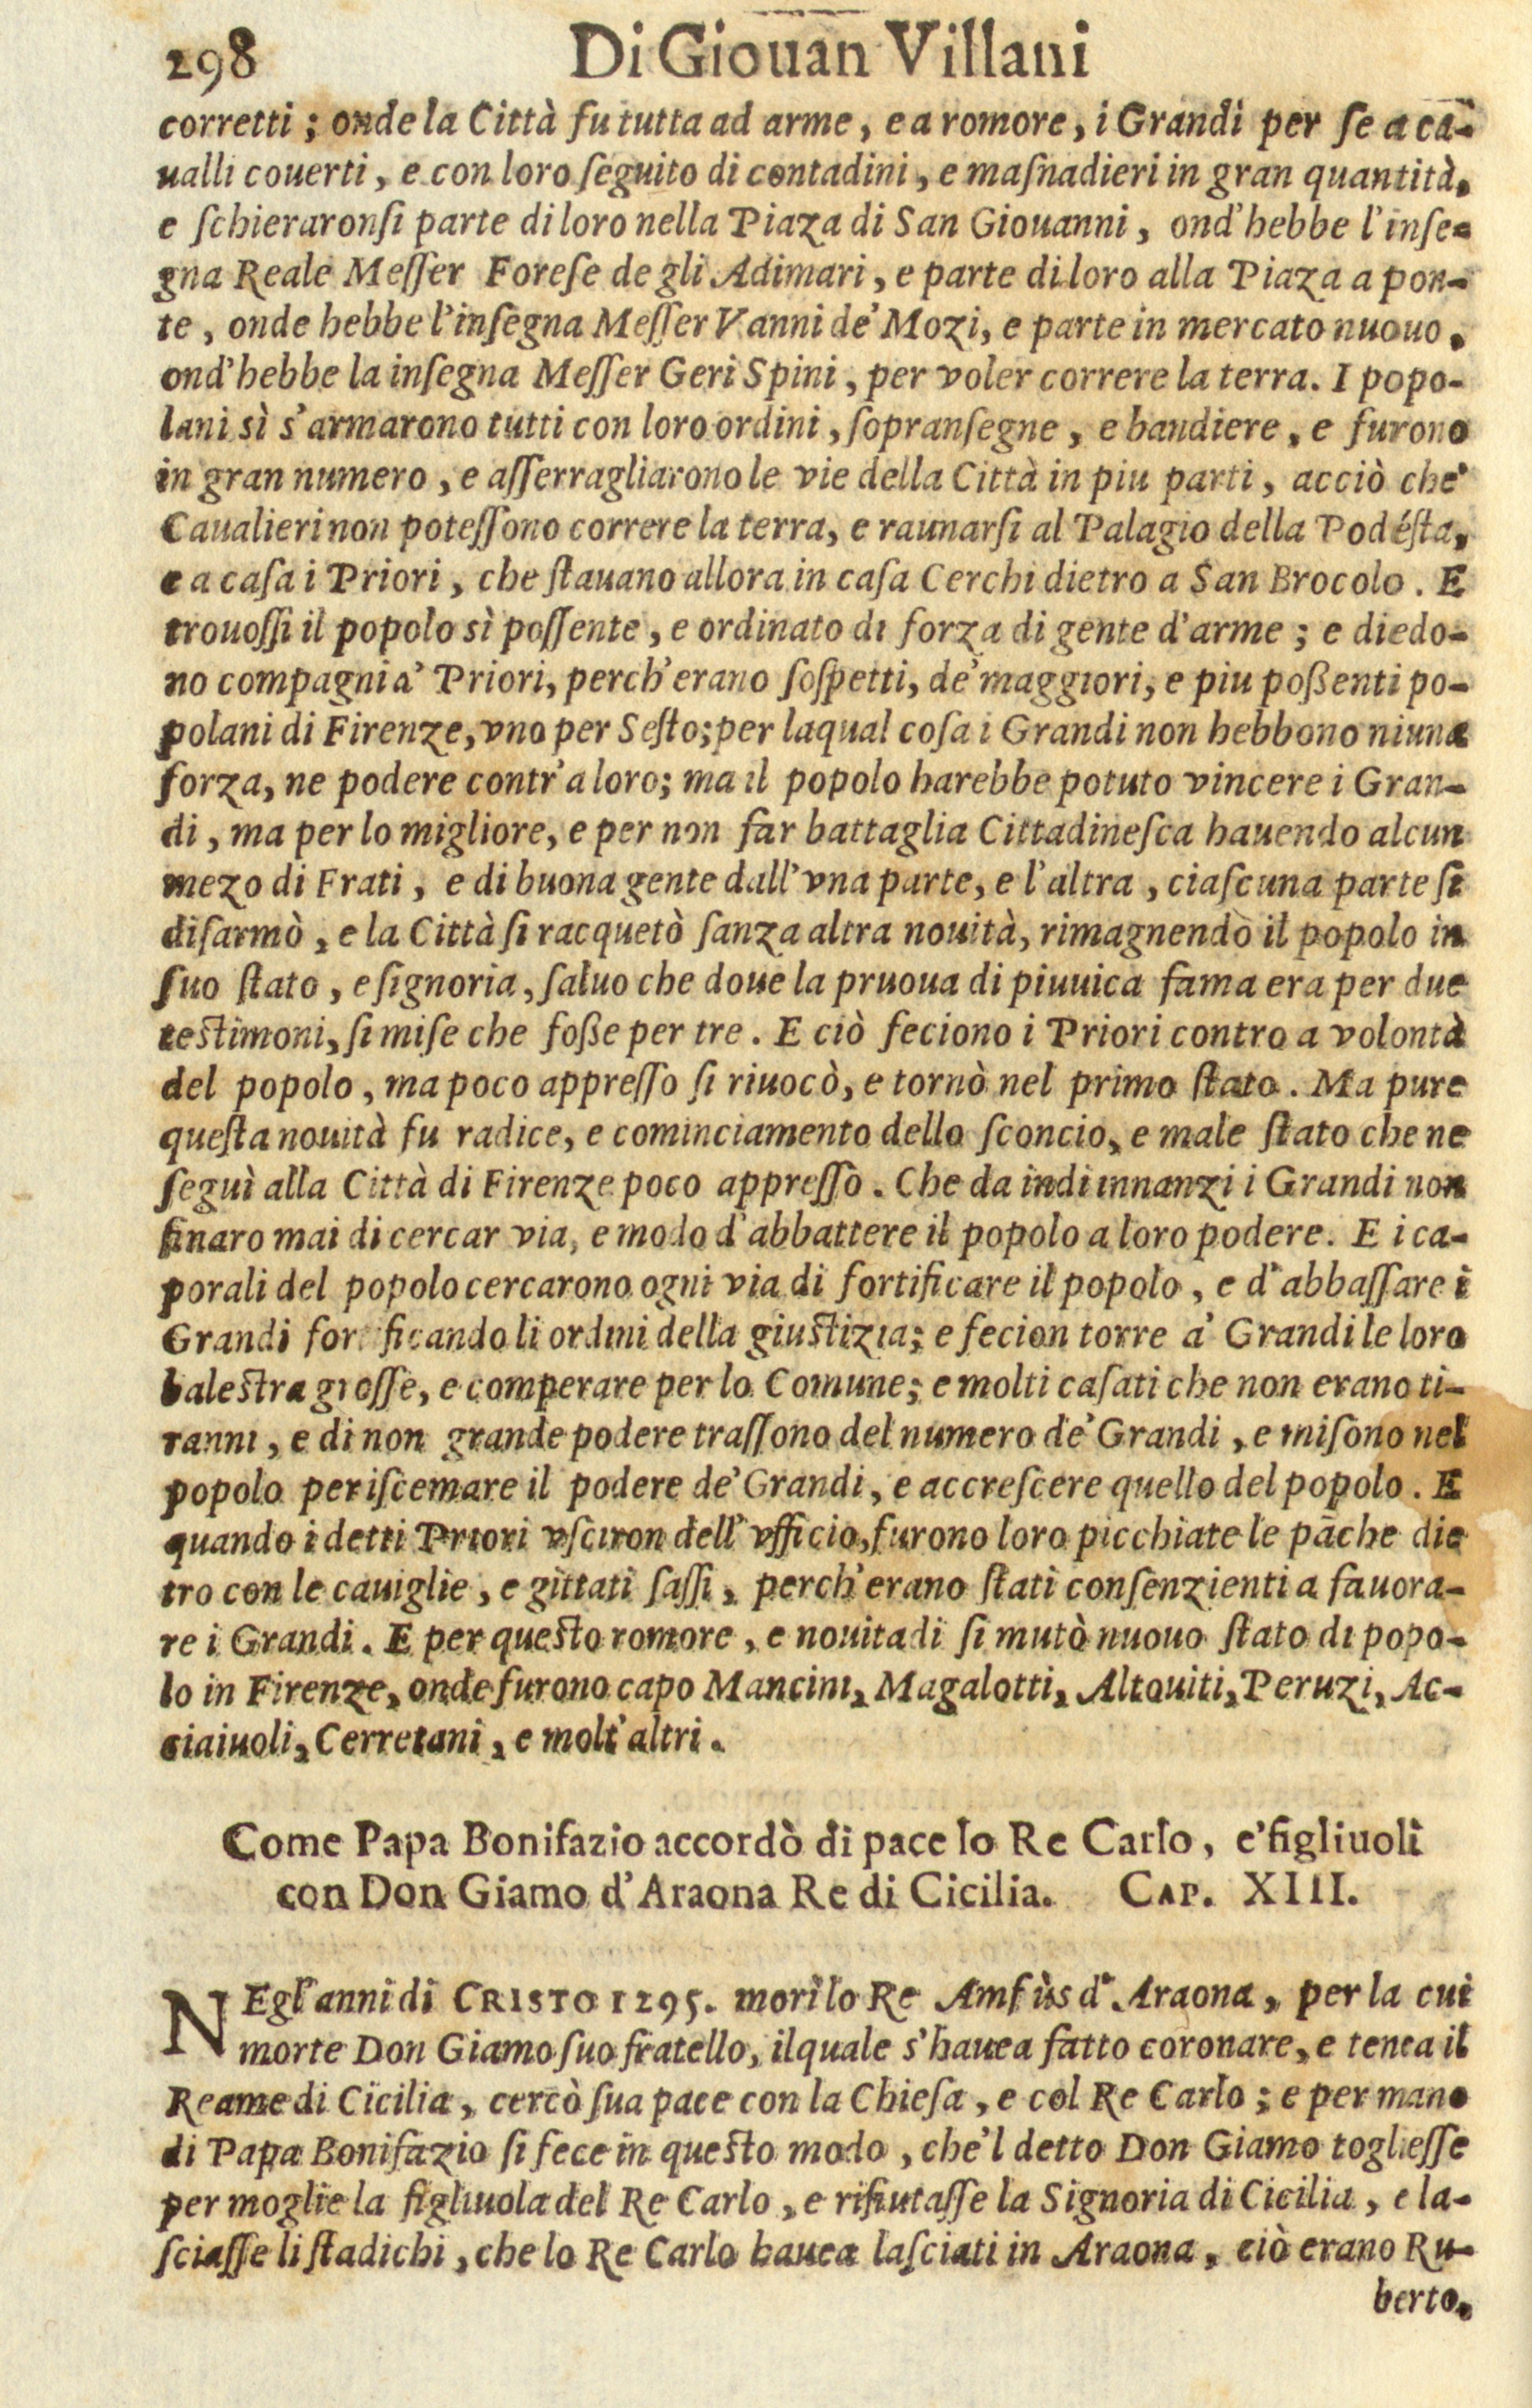 298 Di Giouan Villani
corretti; onde la Città fu tutta ad arme, e a romore, i Grandi per ſe a ca-
ualli couerti, e con loro ſeguito di contadini, e maſnadieri in gran quantità,
e ſchieraronſi parte di loro nella Piaza di San Giouanni, ond'hebbe l'inſe-
gna Reale Meſſer Foreſe degli Adimari, e parte di loro alla Piaza a pon-
te, onde hebbe l'inſegna Meſſer Vanni de' Mozi, e parte in mercato nuouo,
ond'hebbe la inſegna Meſſer Geri Spini, per voler correre la terra. I popo-
lani sì s'armarono tutti con loro ordini, ſopranſegne, e bandiere, e furono
in gran numero, e aſſerragliarono le vie della Città in piu parti, acciò che'
Caualieri non poteſſono correre la terra, e raunarſi al Palagio della Podéſta,
e a caſa i Priori, che ſtauano allora in caſa Cerchi dietro a San Brocolo. E
trouoſſi il popolo sì poſſente, e ordinato di forza di gente d'arme; e diedo-
no compagni a' Priori, perch'erano ſoſpetti, de' maggiori, e piu poßenti po-
polani di Firenze, vno per Seſto; per laqual coſa i Grandi non hebbono niuna
forza, ne podere contr'a loro; ma il popolo harebbe potuto vincere i Gran-
di, ma per lo migliore, e per non far battaglia Cittadineſca hauendo alcun
mezo di Frati, e di buona gente dall'vna parte, e l'altra, ciaſcuna parte ſi
diſarmò, e la Città ſi racquetò ſanza altra nouità, rimagnendo il popolo in
ſuo ſtato, e ſignoria, ſaluo che doue la pruoua di piuuica fama era per due
teſtimoni, ſi miſe che foße per tre. E ciò feciono i Priori contro a volontà
del popolo, ma poco appreſſo ſi riuocò, e tornò nel primo ſtato. Ma pure
queſta nouità fu radice, e cominciamento dello ſconcio, e male ſtato che ne
ſeguì alla Città di Firenze poco appreſſo. Che da indi innanzi i Grandi non
finaro mai di cercar via, e modo d'abbattere il popolo a loro podere. E i ca-
porali del popolo cercarono ogni via di fortificare il popolo, e d'abbaſſare i
Grandi for ficando li ordini della giuſtizia; e fecion torre a' Grandi le loro
baleſtra groſſe, e comperare per lo Comune; e molti caſati che non erano ti-
ranni, e di non grande podere traſſono del numero de' Grandi, e miſono nel
popolo per iſcemare il podere de' Grandi, e accreſcere quello del popolo. E
quando i detti Priori vſciron dell'vfficio, furono loro picchiate le pāche die
tro con le cauiglie, e gittati ſaſſi, perch'erano ſtati conſenzienti a fauora-
re i Grandi. E per queſto romore, e nouitadi ſi mutò nuouo ſtato di popo-
lo in Firenze, onde furono capo Mancini, Magalotti, Altouiti, Peruzi, Ac-
ciaiuoli, Cerretani, e molt'altri.
Come Papa Bonifazio accordò di pace lo Re Carlo, e' figliuoli
con Don Giamo d'Araona Re di Cicilia. CAP. XIII.
NEgl'anni di CRISTO 1295. morì lo Re Amfùs d'Araona, per la cui
morte Don Giamo ſuo fratello, ilquale s'hauea fatto coronare, e tenea il
Reame di Cicilia, cercò ſua pace con la Chieſa, e col Re Carlo; e per mano
di Papa Bonifazio ſi fece in queſto modo, che'l detto Don Giamo toglieſſe
per moglie la figliuola del Re Carlo, e rifiutaſſe la Signoria di Cicilia, e la-
ſciaſſe li ſtadichi, che lo Re Carlo hauea laſciati in Araona, ciò erano Ru-
berto,